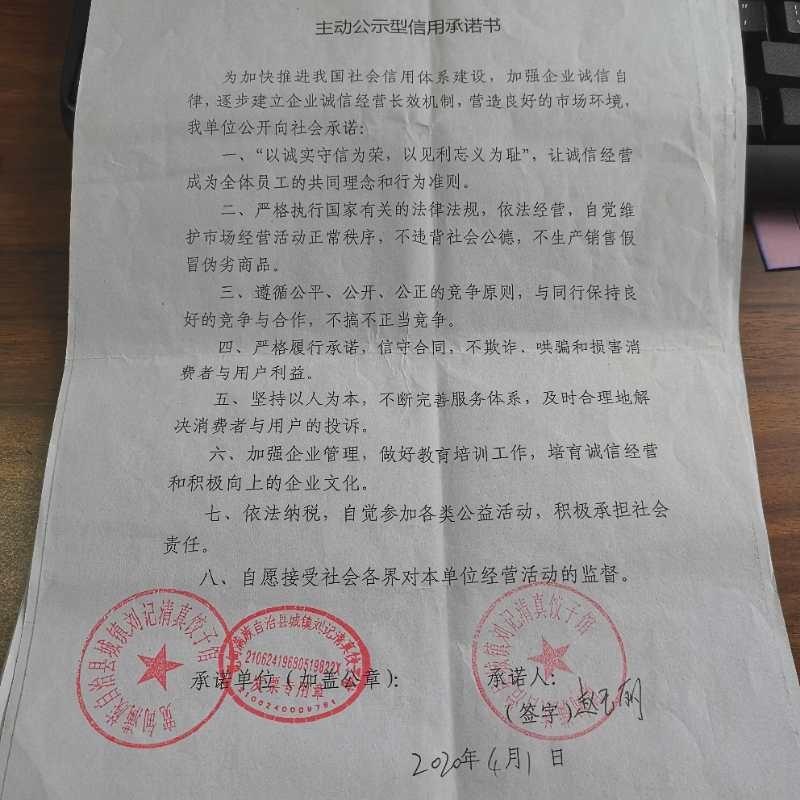 主动公示型信用承诺书
为加快推进我国社会信用体系建设，加强企业诚信自
律，逐步建立企业诚信经营长效机制，营造良好的市场环境，
我单位公开向社会承诺：
一、“以诚实守信为荣，以见利忘义为耻”，让诚信经营
成为全体员工的共同理念和行为准则。
二、严格执行国家有关的法律法规，依法经营，自觉维
护市场经营活动正常秩序，不违背社会公德，不生产销售假
冒伪劣商品。
三、遵循公平、公开、公正的竞争原则，与同行保持良
好的竞争与合作，不搞不正当竞争。
四、严格履行承诺，信守合同，不欺诈、哄骗和损害消
费者与用户利益。
五、坚持以人为本，不断完善服务体系，及时合理地解
决消费者与用户的投诉。
六、加强企业管理，做好教育培训工作，培育诚信经营
和积极向上的企业文化。
七、依法纳税，自觉参加各类公益活动，积极承担社会
责任。
八、自愿接受社会各界对本单位经营活动的监督。
宽甸满族自治县城镇刘记清真饺子馆
满族自治县城镇刘记清真饺子馆
发票专用章
承诺单位（加盖公章）：
承诺人：
（签字）赵艺丽
宽甸满族自治县城镇刘记清真饺子馆
2020年4月1日